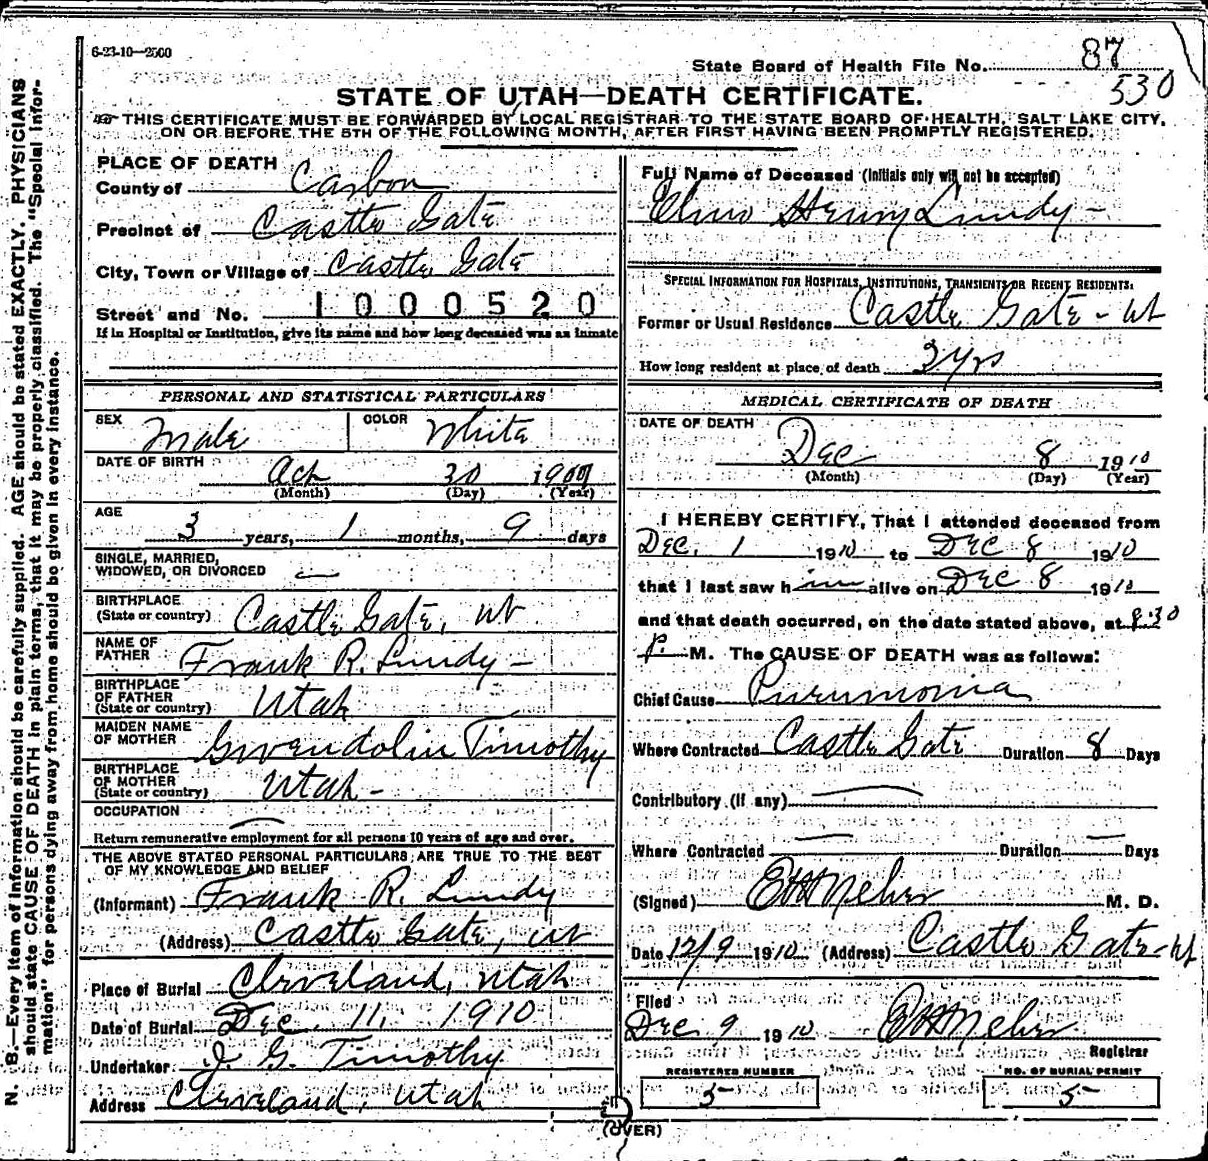 6-23-10—2500
State Board of Health File No. 87
530
STATE OF UTAH—DEATH CERTIFICATE.
THIS CERTIFICATE MUST BE FORWARDED BY LOCAL REGISTRAR TO THE STATE BOARD OF HEALTH, SALT LAKE CITY,
ON OR BEFORE THE 5TH OF THE FOLLOWING MONTH, AFTER FIRST HAVING BEEN PROMPTLY REGISTERED.
PLACE OF DEATH
County of Carbon
Precinct of Castle Gate
City, Town or Village of Castle Gate
Street and No. 1000520
If in Hospital or Institution, give its name and how long deceased was an inmate
PERSONAL AND STATISTICAL PARTICULARS
SEX Male COLOR White
DATE OF BIRTH Oct 30 1907
(Month) (Day) (Year)
AGE
3 years, 1 months, 9 days
SINGLE, MARRIED,
WIDOWED, OR DIVORCED —
BIRTHPLACE
(State or country) Castle Gate, Ut
NAME OF
FATHER Frank R. Lundy —
BIRTHPLACE
OF FATHER
(State or country) Utah
MAIDEN NAME
OF MOTHER Gwendolin Timothy
BIRTHPLACE
OF MOTHER
(State or country) Utah —
OCCUPATION —
Return remunerative employment for all persons 10 years of age and over.
THE ABOVE STATED PERSONAL PARTICULARS ARE TRUE TO THE BEST
OF MY KNOWLEDGE AND BELIEF
(Informant) Frank R. Lundy
(Address) Castle Gate, Ut
Place of Burial Cleveland, Utah
Date of Burial Dec. 11, 1910
Undertaker J. G. Timothy
Address Cleveland, Utah
Full Name of Deceased (Initials only will not be accepted)
Henry Lundy —
SPECIAL INFORMATION FOR HOSPITALS, INSTITUTIONS, TRANSIENTS OR RECENT RESIDENTS:
Former or Usual Residence Castle Gate - Ut
How long resident at place of death 3 yrs
MEDICAL CERTIFICATE OF DEATH
DATE OF DEATH
Dec 8 1910
(Month) (Day) (Year)
I HEREBY CERTIFY, That I attended deceased from
Dec. 1 1910 to Dec 8 1910
that I last saw him alive on Dec 8 1910
and that death occurred, on the date stated above, at 8:30
P. M. The CAUSE OF DEATH was as follows:
Chief Cause Pneumonia
Where Contracted Castle Gate Duration 8 Days
Contributory (if any) —
Where Contracted — Duration — Days
(Signed) M. D.
Date 12/9 1910 (Address) Castle Gate - Ut
Filed
Dec 9 1910
Registrar
REGISTERED NUMBER NO. OF BURIAL PERMIT
5 5
(OVER)
N. B.—Every item of information should be carefully supplied. AGE should be stated EXACTLY. PHYSICIANS
should state CAUSE OF DEATH in plain terms, that it may be properly classified. The "Special Infor-
mation" for persons dying away from home should be given in every instance.